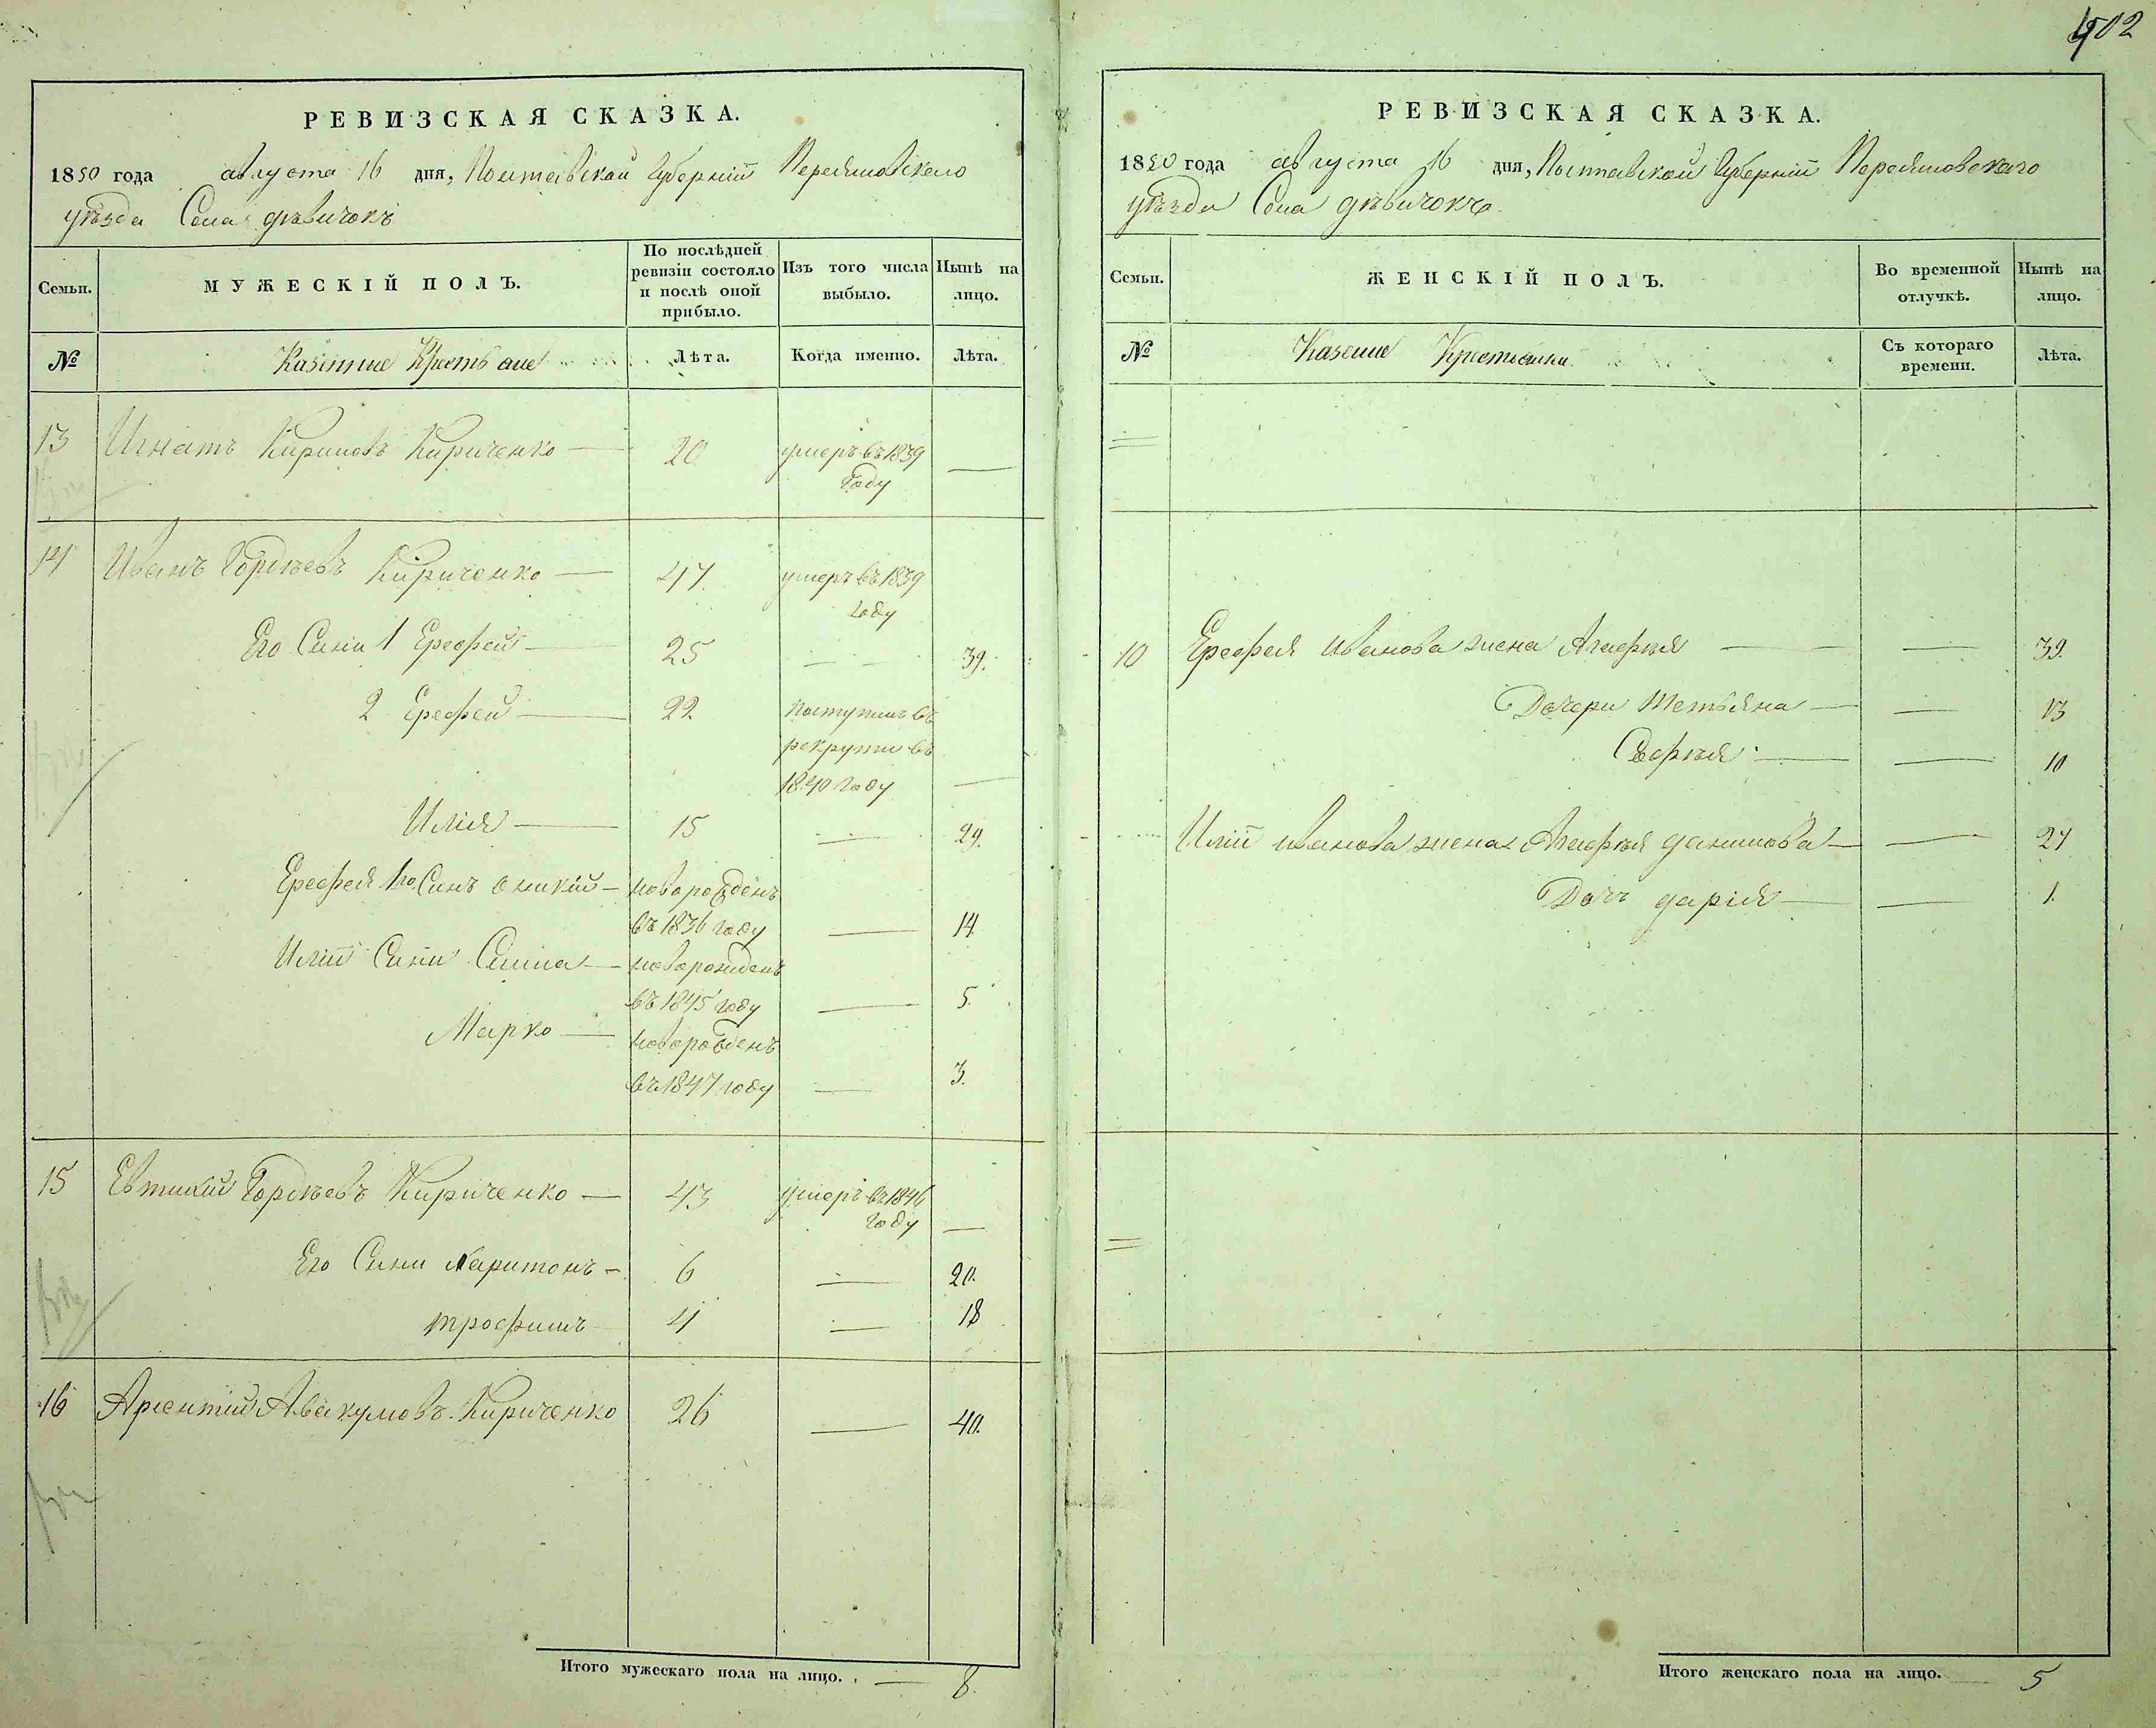 502
РЕВИЗСКАЯ СКАЗКА.
1850 года августа 16 дня, Полтавской Губерніи Переяславского
уѣзда Села дѣвичокъ
Семьи.
МУЖЕСКІЙ ПОЛЪ.
По послѣдней ревизіи состояло и послѣ оной прибыло.
Изъ того числа выбыло.
Нынѣ на лицо.
№
Казенные Крестьяне
Лѣта.
Когда именно.
Лѣта.
13 Игнатъ Кириловъ Кириченко — 20 умеръ въ 1839 —
году
14 Иванъ Гордѣевъ Кириченко — 47 умеръ въ 1839
году
Его Сини 1 Ерофей — 25 — 39.
2 Ерофей — 22 поступилъ въ
рекрути въ
1840 году —
Илія — 15 — 29.
Ерофея 1го Синъ Оникій — новорожденъ
въ 1836 году — 14.
Иліи Сини Сима — новорожденъ
въ 1845 году — 5.
Марко — новорожденъ
въ 1847 году — 3.
15 Евтихій Гордѣевъ Кириченко — 43 умеръ въ 1846
году —
Его Сини Харитонъ — 6 — 20.
трофимъ 4 — 18
16 Арсентій Авакумовъ Кириченко 26 — 40.
Итого мужескаго пола на лицо. — 8.
РЕВИЗСКАЯ СКАЗКА.
1850 года августа 16 дня, Полтавской Губерніи Переяславского
уѣзда Села дѣвичокъ
Семьи.
ЖЕНСКІЙ ПОЛЪ.
Во временной отлучкѣ.
Нынѣ на лицо.
№
Казение Крестянки
Съ котораго времени.
Лѣта.
10 Ерофея иванова жена Агафія — — 39.
Дочери Тетьяна — — 13
Софія — — 10
Иліи иванова жена Агафія данилова — — 27
Доч дарія — — 1.
Итого женскаго пола на лицо. — 5